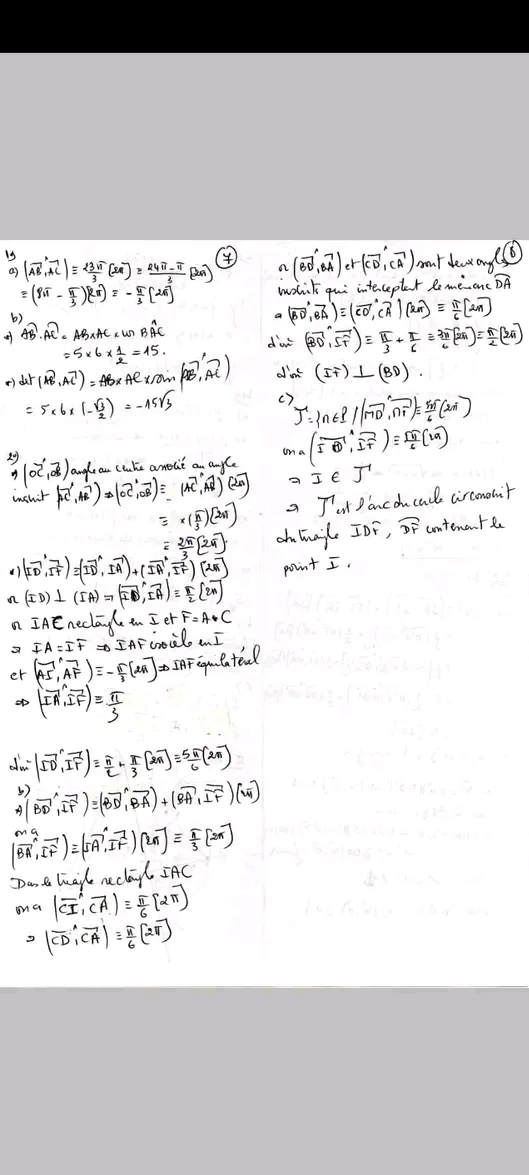 ⑦
1°)
a) (AB^,AC) ≡ 23π/3 [2π] ≡ (24π-π)/3 [2π]
≡ (8π - π/3)[2π] ≡ - π/3 [2π]
b)
*) AB.AC = AB×AC×cos BAC
= 5×6×1/2 = 15.
*) det(AB,AC) = AB×AC×sin(AB^,AC)
= 5×6×(-√3/2) = -15√3
2°)
*) (OC^,OB) angle au centre associé au angle
inscrit (AC^,AB) ⇒ (OC^,OB) ≡ (AC^,AB) [2π]
≡ ×(π/3) [2π]
≡ 2π/3 [2π]
*) (ID^,IF) ≡ (ID^,IA) + (IA^,IF) [2π]
or (ID) ⊥ (IA) ⇒ (ID^,IA) ≡ π/2 [2π]
or IAC rectangle en I et F = A*C
⇒ IA = IF ⇒ IAF isocèle en I
et (AI^,AF) ≡ -π/3 [2π] ⇒ IAF équilatéral
⇒ (IA^,IF) ≡ π/3
d'où (ID^,IF) ≡ π/2 + π/3 [2π] ≡ 5π/6 [2π]
b)
*) (BD^,IF) ≡ (BD^,BA) + (BA^,IF) [2π]
on a
(BA^,IF) ≡ (IA^,IF) [2π] ≡ π/3 [2π]
Dans le triangle rectangle IAC
on a (CI^,CA) ≡ π/6 [2π]
⇒ (CD^,CA) ≡ π/6 [2π]
⑧
or (BD^,BA) et (CD^,CA) sont deux angles
inscrits qui interceptent le même arc DA
(BD^,BA) ≡ (CD^,CA) [2π] ≡ π/6 [2π]
d'où (BD^,IF) ≡ π/3 + π/6 ≡ 3π/6 [2π] ≡ π/2 [2π]
d'où (IF) ⊥ (BD).
c)
Γ = {M ∈ P / (MD^,MF) ≡ 5π/6 [2π]
on a (ID^,IF) ≡ 5π/6 [2π]
⇒ I ∈ Γ
⇒ Γ est l'arc du cercle circonscrit
du triangle IDF, DF contenant le
point I.